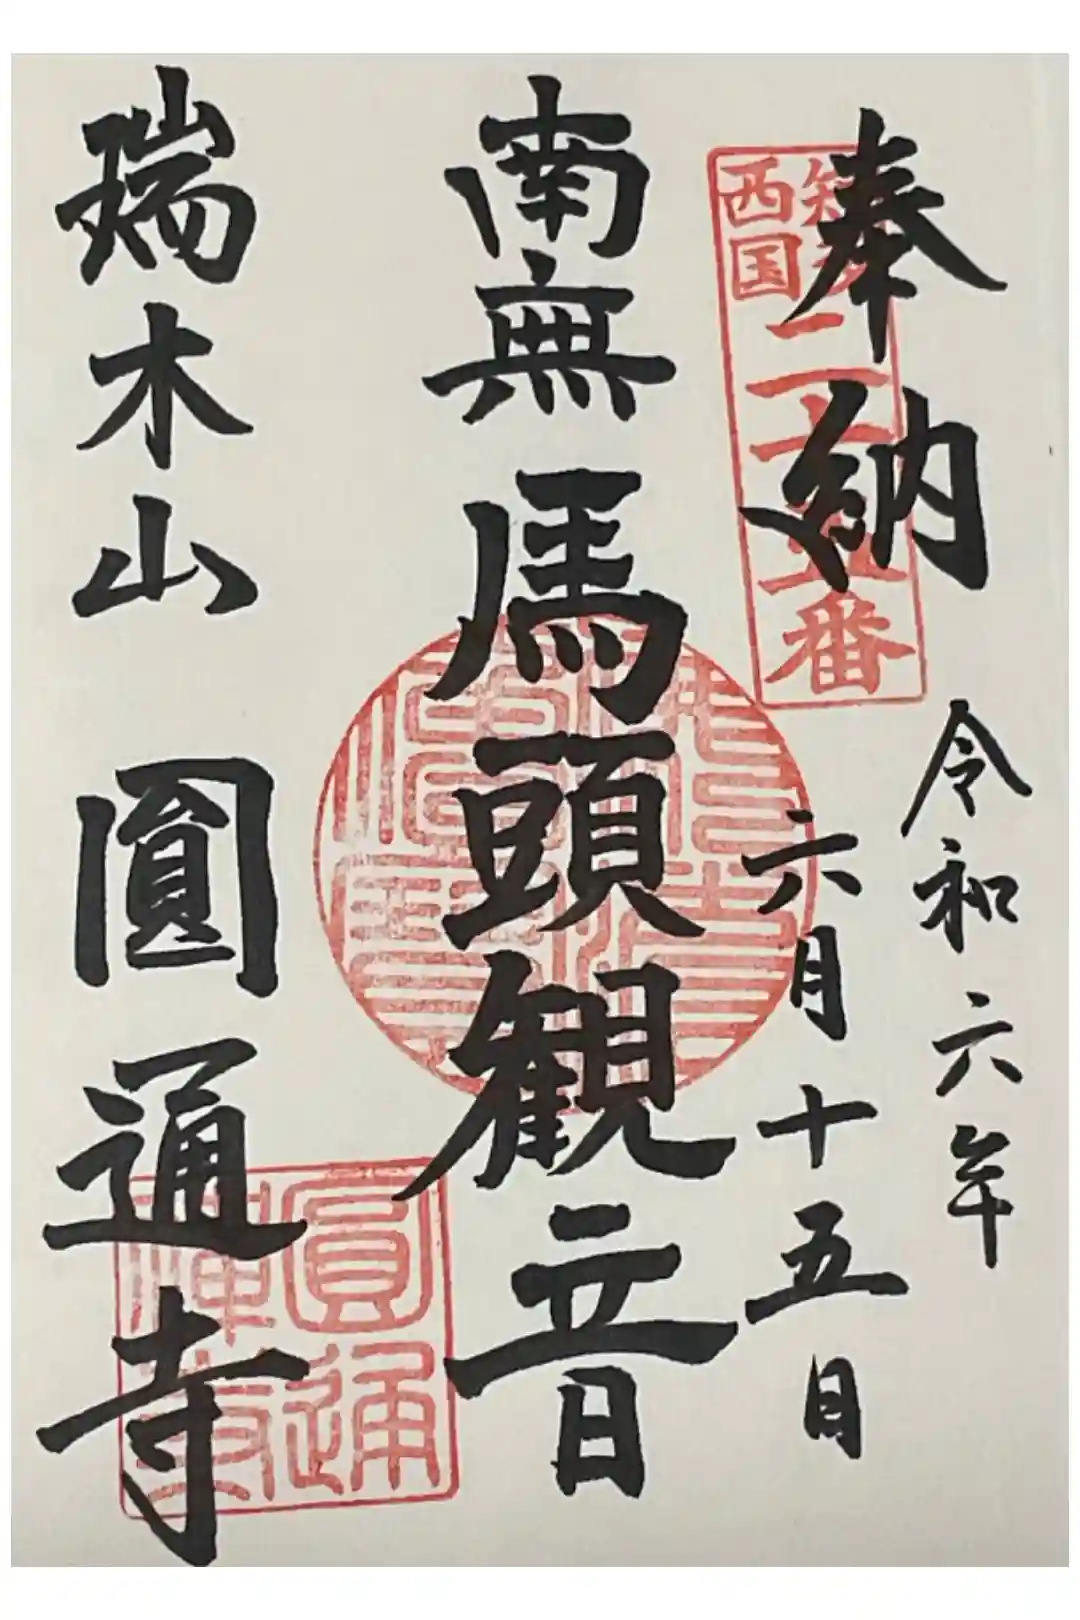 奉納
令和六年
六月十五日
南無馬頭観音
瑞木山 圓通寺
知多
西国
二十五番
圓通
禅寺